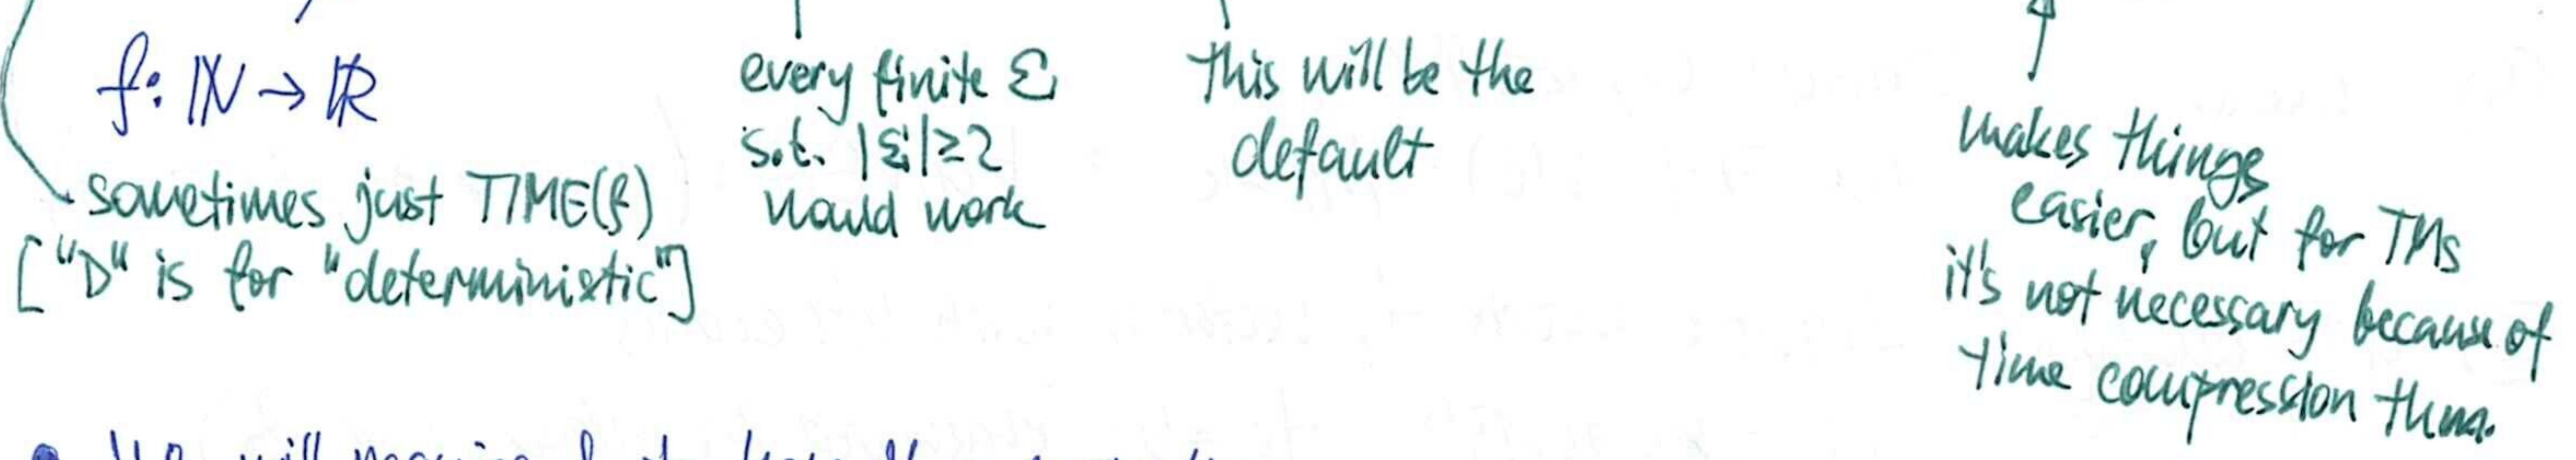 f: ℕ → ℝ
sometimes just TIME(f)
["D" is for "deterministic"]
every finite Σ
s.t. |Σ|≥2
would work
this will be the
default
makes things
easier, but for TMs
it's not necessary because of
time compression thm.
• We will require f to have the